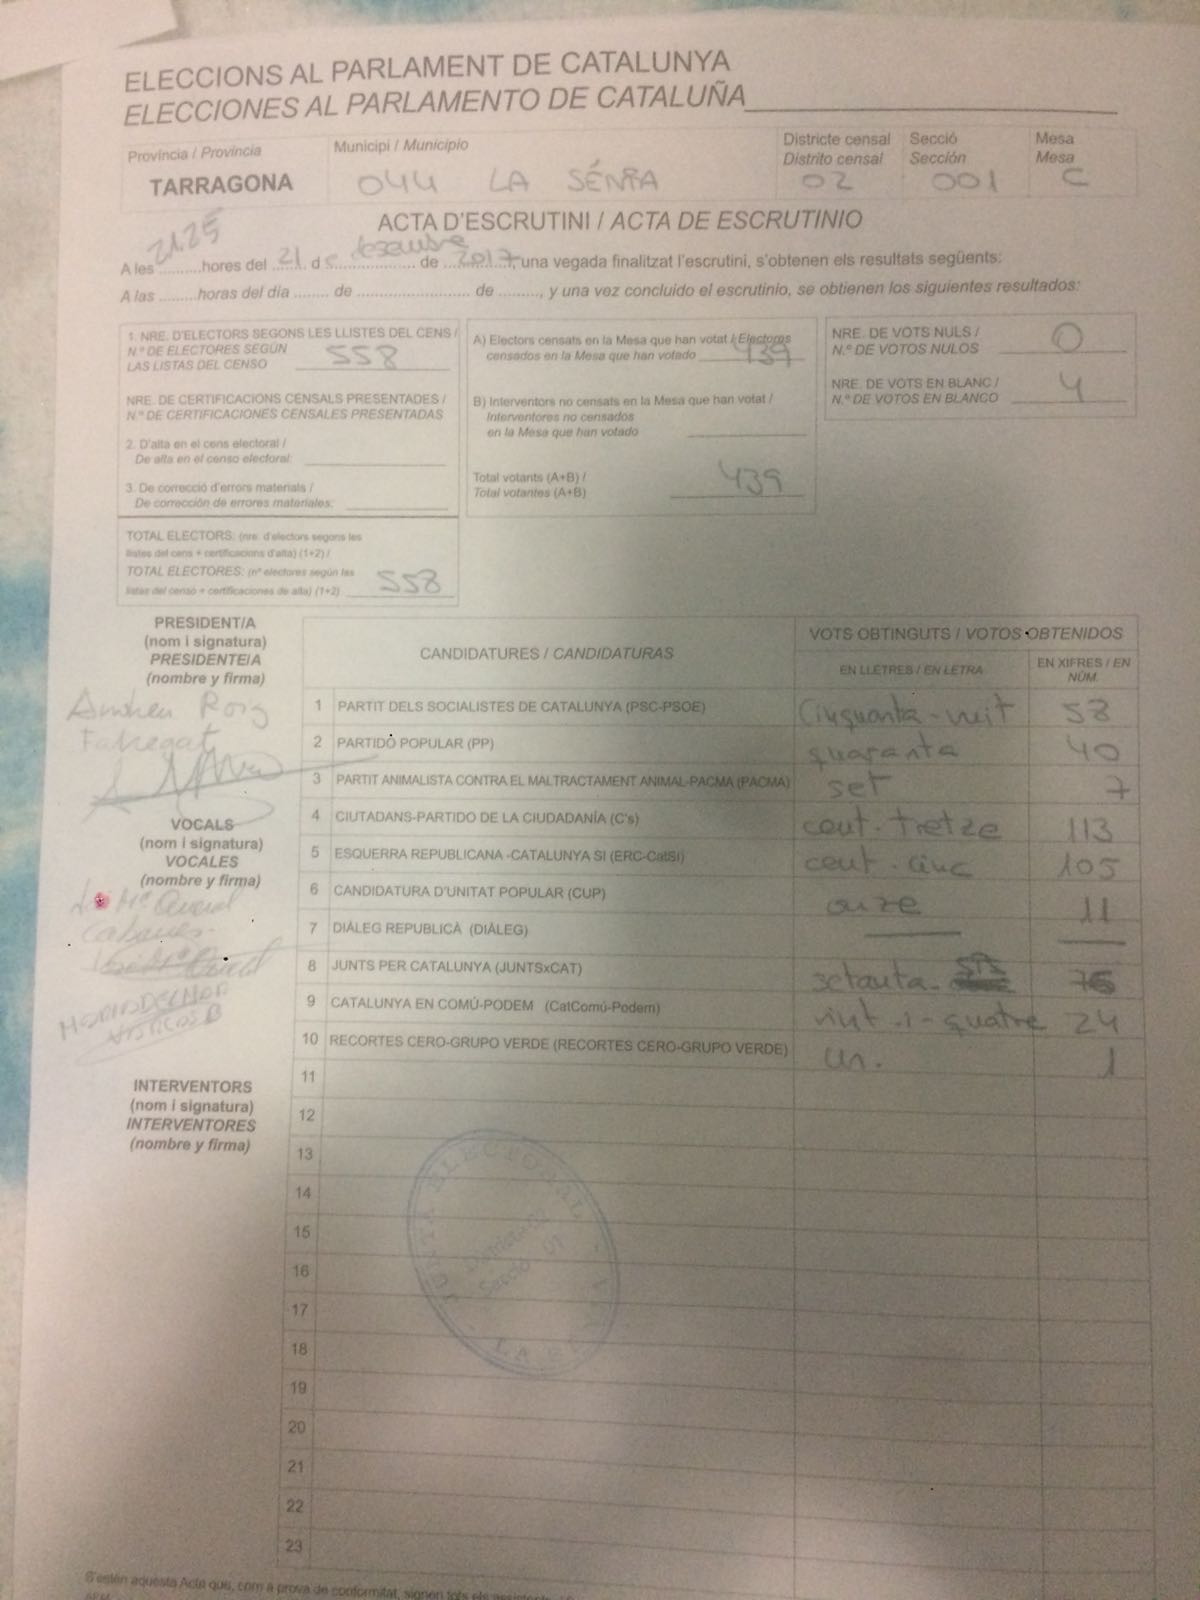 ELECCIONS AL PARLAMENT DE CATALUNYA
ELECCIONES AL PARLAMENTO DE CATALUÑA
Província / Provincia
TARRAGONA
Municipi / Municipio
044 LA SÉNIA
Districte censal
Distrito censal
02
Secció
Sección
001
Mesa
Mesa
C
ACTA D'ESCRUTINI / ACTA DE ESCRUTINIO
A les 21.25 hores del 21 de desembre de 2017, una vegada finalitzat l'escrutini, s'obtenen els resultats següents:
A las .........horas del día ........ de ........................ de ........, y una vez concluido el escrutinio, se obtienen los siguientes resultados:
1. NRE. D'ELECTORS SEGONS LES LLISTES DEL CENS /
N.º DE ELECTORES SEGÚN
LAS LISTAS DEL CENSO 558
NRE. DE CERTIFICACIONS CENSALS PRESENTADES /
N.º DE CERTIFICACIONES CENSALES PRESENTADAS
2. D'alta en el cens electoral /
De alta en el censo electoral:
3. De correcció d'errors materials /
De corrección de errores materiales:
TOTAL ELECTORS: (nre. d'electors segons les
llistes del cens + certificacions d'alta) (1+2) /
TOTAL ELECTORES: (nº electores según las
listas del censo + certificaciones de alta) (1+2) 558
A) Electors censats en la Mesa que han votat / Electores
censados en la Mesa que han votado 439
B) Interventors no censats en la Mesa que han votat /
Interventores no censados
en la Mesa que han votado
Total votants (A+B) /
Total votantes (A+B) 439
NRE. DE VOTS NULS /
N.º DE VOTOS NULOS 0
NRE. DE VOTS EN BLANC /
N.º DE VOTOS EN BLANCO 4
PRESIDENT/A
(nom i signatura)
PRESIDENTE/A
(nombre y firma)
Andreu Roig
Fabregat
VOCALS
(nom i signatura)
VOCALES
(nombre y firma)
INTERVENTORS
(nom i signatura)
INTERVENTORES
(nombre y firma)
CANDIDATURES / CANDIDATURAS
VOTS OBTINGUTS / VOTOS OBTENIDOS
EN LLETRES / EN LETRA
EN XIFRES / EN NÚM.
1 PARTIT DELS SOCIALISTES DE CATALUNYA (PSC-PSOE) Cinquanta-vuit 58
2 PARTIDO POPULAR (PP) quaranta 40
3 PARTIT ANIMALISTA CONTRA EL MALTRACTAMENT ANIMAL-PACMA (PACMA) set 7
4 CIUTADANS-PARTIDO DE LA CIUDADANÍA (C's) cent-tretze 113
5 ESQUERRA REPUBLICANA -CATALUNYA SI (ERC-CatSí) cent-cinc 105
6 CANDIDATURA D'UNITAT POPULAR (CUP) onze 11
7 DIÀLEG REPUBLICÀ (DIÀLEG)
8 JUNTS PER CATALUNYA (JUNTSxCAT) setanta-sis 76
9 CATALUNYA EN COMÚ-PODEM (CatComú-Podem) vint-i-quatre 24
10 RECORTES CERO-GRUPO VERDE (RECORTES CERO-GRUPO VERDE) un. 1
11
12
13
14
15
16
17
18
19
20
21
22
23
JUNTA ELECTORAL
Districte 02
Secció 01
S'estén aquesta Acta que, com a prova de conformitat, signen tots els